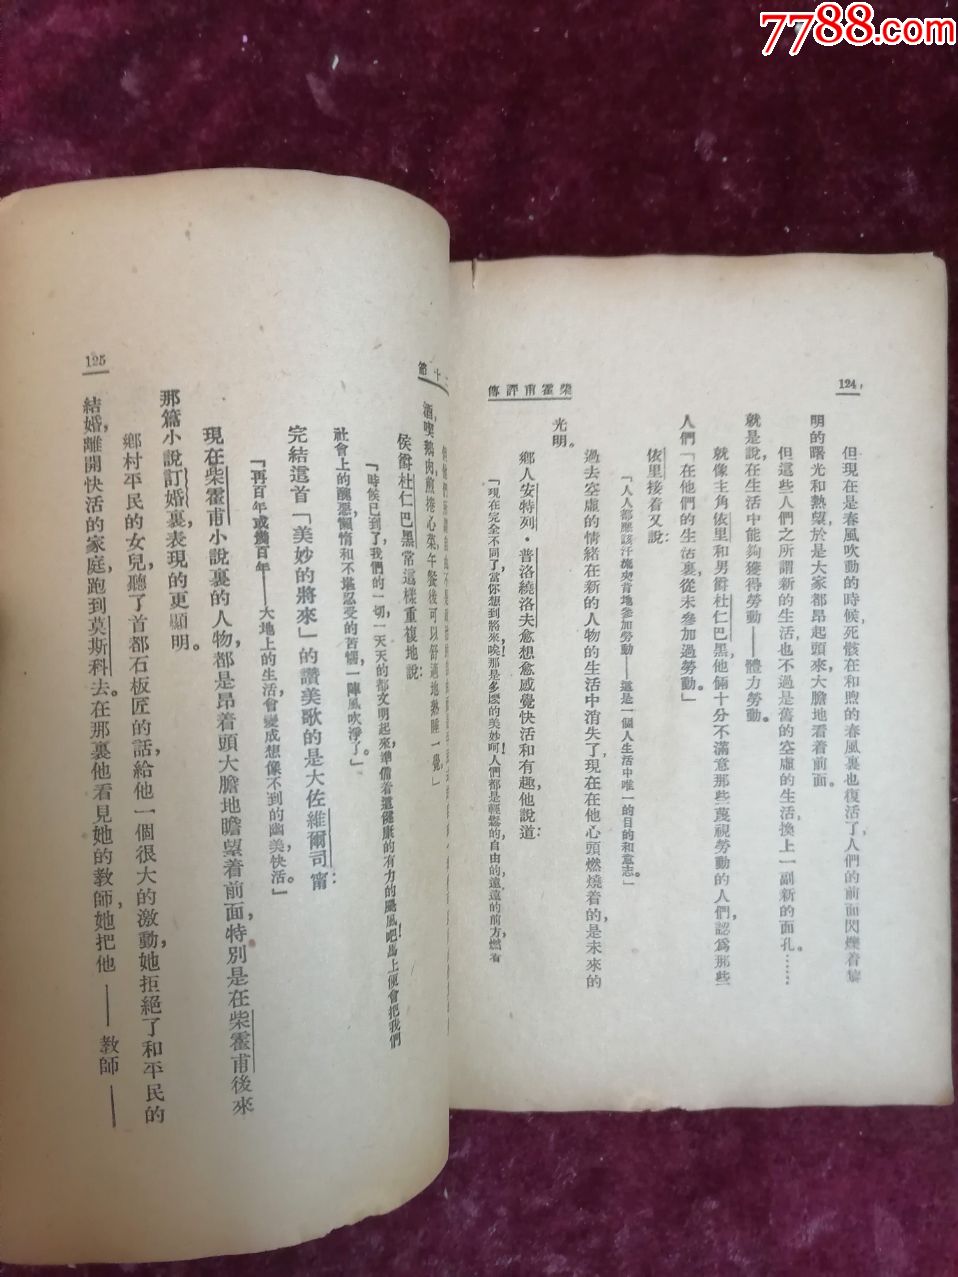 7788.com
124
柴霍甫評傳
但現在是春風吹動的時候,死骸在和煦的春風裏也復活了,人們的前面閃爍着黎
明的曙光和熱望,於是大家都昂起頭來大膽地看着前面。
但這些人們之所謂新的生活也不過是舊的空虛的生活換上一副新的面孔……
就是說在生活中能夠獲得勞動——體力勞動。
就像主角依里和男爵杜仁巴黑他倆十分不滿意那些蔑視勞動的人們,認爲那些
人們「在他們的生活裏從未參加過勞動」
依里接着又說:
「人人都應該汗流夾背地參加勞動——這是一個人生活中唯一的目的和意志。」
過去空虛的情緒在新的人物的生活中消失了,現在在他心頭燃燒着的是未來的
光明。
鄉人安特列·普洛繞洛夫愈想愈感覺快活和有趣,他說道:
「現在完全不同了,當你想到將來唉!那是多麽的美妙呵!人們都是輕鬆的自由的,遠遠的前方燃着
十節
酒,喫鵝肉,煎捲心菜,午餐後可以舒適地熟睡一覺。」
侯爵杜仁巴黑常這樣重複地說:
「時候已到了,我們的一切,一天天的都文明起來,準備着這健康的有力的颶風吧!馬上便會把我們
社會上的醜惡,懶惰和不堪忍受的苦惱,一陣風吹淨了。」
完結這首「美妙的將來」的讚美歌的是大佐維爾司甯:
「再百年或幾百年——大地上的生活,會變成想像不到的幽美快活。」
現在柴霍甫小說裏的人物都是昂着頭大膽地瞻望着前面,特別是在柴霍甫後來
那篇小說訂婚裏,表現的更顯明。
鄉村平民的女兒聽了首都石板匠的話,給他一個很大的激動,她拒絕了和平民的
結婚,離開快活的家庭,跑到莫斯科去。在那裏他看見她的教師,她把他——教師——
125